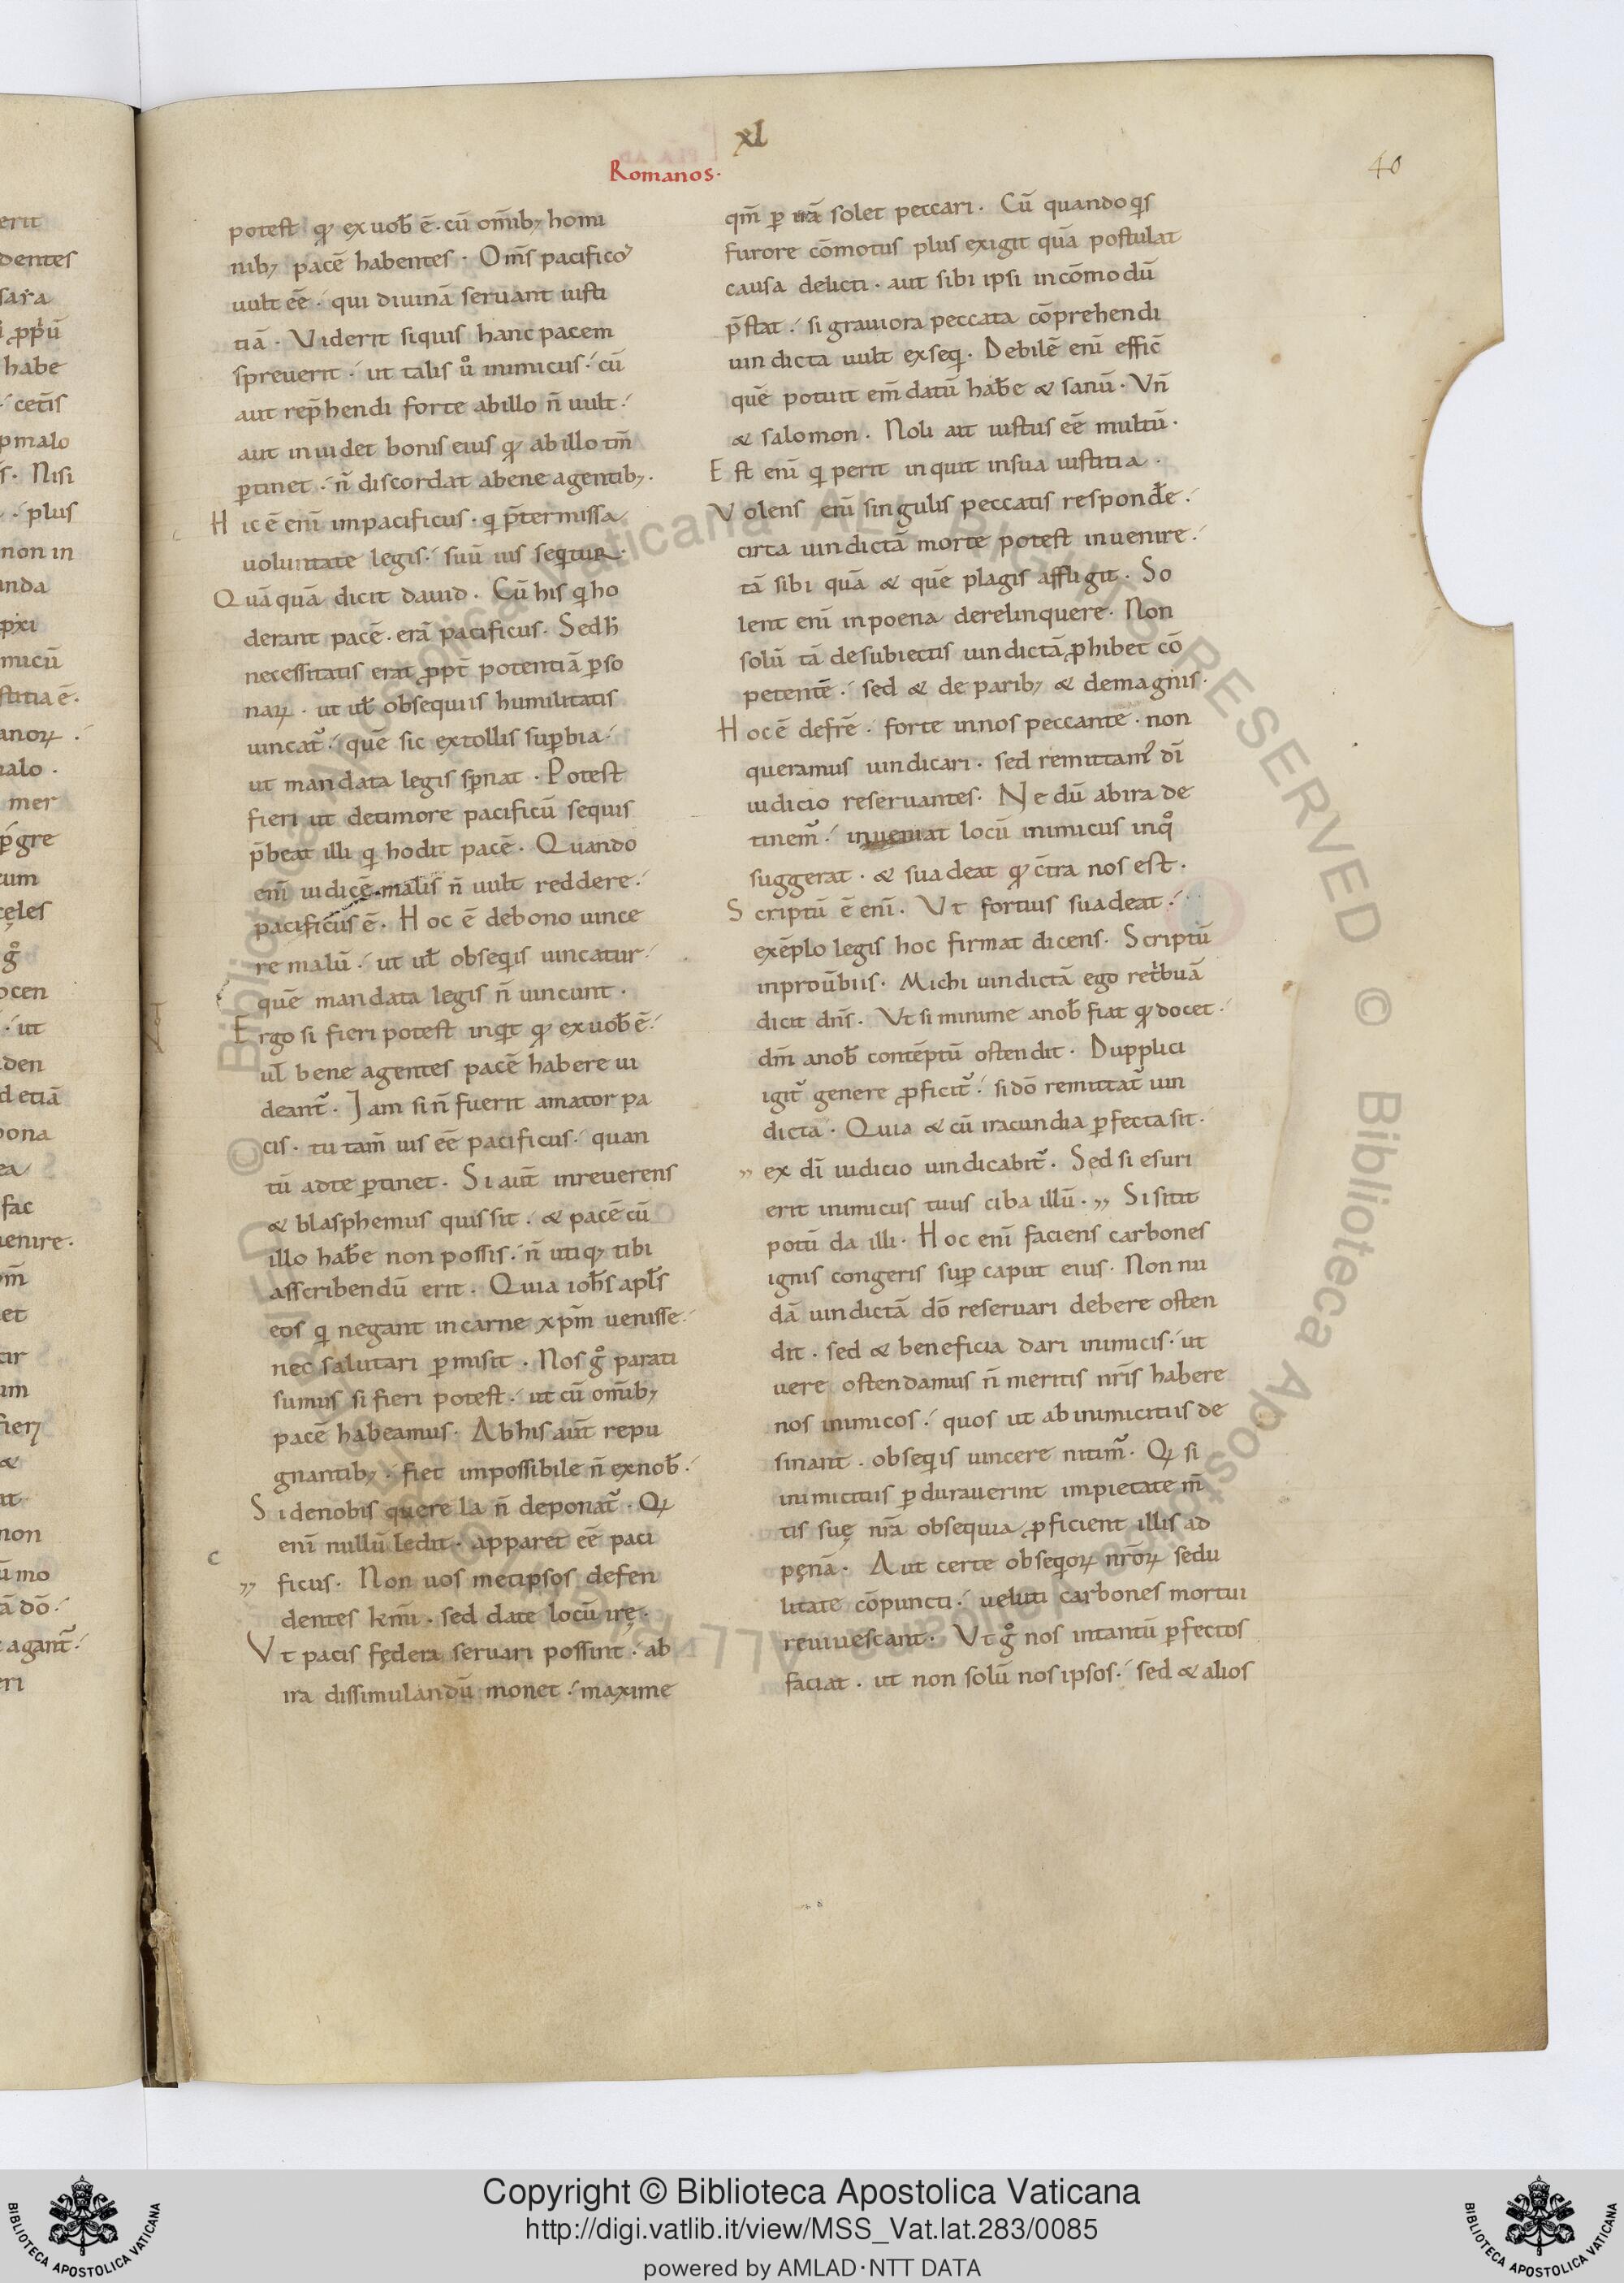 xl
Romanos.
40
potest qđ ex uoƀ ē. cū om̄ib; homi
nib; pacē habentes. Om̄s pacificos
uult eē. qui diuinā seruant iusti
tiā. Viderit siquis hanc pacem
spreuerit. ut talis ů inimicus. cū
aut rep̄hendi forte abillo n̄ uult.
aut inuidet bonis eius qđ abillo tm̄
ꝑtinet. n̄ discordat abene agentib;.
Hic ē eni̅ inpacificus. q̇ p̄termissa
uoluntate legis. suū ius seqitur.
Quāquā dicit dauid. Cū his q̇ ho
derant pacē. erā pacificus. Sed h̄
necessitatis erat ꝓpt̄ potentiā ꝑso
naꝝ. ut uł obsequiis humilitatis
uincat̃. quē sic extollis suꝑbia.
ut mandata legis sp̄nat. Potest
fieri ut detimore pacificū sequis
p̄beat illi q̇ hodit pacē. Quando
eni̅ iudicē malis n̄ uult reddere.
pacificus ē. Hoc ē debono uince
re malū. ut uł obseqis uincatur.
quē mandata legis n̄ uincunt.
Ergo si fieri potest inqt qđ ex uoƀ ē.
uł bene agentes pacē habere ui
deant̃. Iam si n̄ fuerit amator pa
cis. tu tam̄ uis eē pacificus. quan
tū adte ꝑtinet. Si aut̄ inreuerens
& blasphemus quis sit. & pacē cū
illo haƀe non possis. n̄ utiq; tibi
asscribendū erit. Quia ioħs apłs
eos q̇ negant incarne xp̄m uenisse.
nec salutari ꝑmisit. Nos g̊ parati
sumus si fieri potest. ut cū om̄ib;
pacē habeamus. Abhis aut̄ repu
gnantib;. fiet impossibile n̄ exnoƀ.
Si denobis querela n̄ deponat̃. Qꝛ
eni̅ nullū ledit. apparet eē paci
ficus. Non uos metipsos defen
dentes km̄i. sed date locū irę.
Vt pacis fędera seruari possint. ab
ira dissimulandū monet. maxime
qm̄ ꝑ irā solet peccari. Cū quando qis
furore cōmotus plus exigit quā postulat
causa delicti. aut sibi ipsi incōmodū
p̄stat. si grauiora peccata cōprehendi
uindicta uult exseqi. Debilē eni̅ effic̄
quē potuit em̄datū haƀe & sanū. Vn̄
& salomon. Noli ait iustus eē multū.
Est eni̅ q̇ perit inquit insua iustitia.
Volens eni̅ singulis peccatis respondere.
circa uindictā morte potest inuenire.
tā sibi quā & quē plagis affligit. So
lent eni̅ inpoena derelinquere. Non
solū tā desubiectis uindictā ꝓhibet cō
petentē. sed & de parib; & demagnis.
Hoc ē defrē. forte innos peccante. non
queramus uindicari. sed remittam̃ dī
iudicio reseruantes. Ne dū abira de
tinem̃. inueniat locū inimicus inq̊
suggerat. & suadeat qđ c̄tra nos est.
Scriptū ē eni̅. Vt fortius suadeat.
exēplo legis hoc firmat dicens. Scriptū
inprou̅biis. Michi uindictā ego retⁱbuā
dicit dn̄s. Vt si minime anoƀ fiat qđ docet.
dm̄ anoƀ contēptū ostendit. Dupplici
igit̃ genere ꝓficit̃. si dō remittat̃ uin
dicta. Quia & cū iracundia ꝑfecta sit.
ex dī iudicio uindicabit̃. Sed si esuri
erit inimicus tuus ciba illū. Si sitit
potū da illi. Hoc eni̅ faciens carbones
ignis congeris suꝑ caput eius. Non nu
dā uindictā dō reseruari debere osten
dit. sed & beneficia dari inimicis. ut
uere ostendamus n̄ meritis nr̄is habere
nos inimicos. quos ut ab inimicitiis de
sinant. obseqis uincere nitim̃. Qꝛ si
inimicitiis ꝑdurauerint impietate m̄
tis suę nr̄a obsequia ꝓficient illis ad
pęnā. Aut certe obseqioꝝ nr̄oꝝ sedu
litate cōpuncti. ueluti carbones mortui
reuiuescant. Vt g̊ nos intantū ꝑfectos
faciat. ut non solū nos ipsos. sed & alios
Copyright © Biblioteca Apostolica Vaticana
http://digi.vatlib.it/view/MSS_Vat.lat.283/0085
powered by AMLAD·NTT DATA
BIBLIOTECA APOSTOLICA VATICANA
BIBLIOTECA APOSTOLICA VATICANA